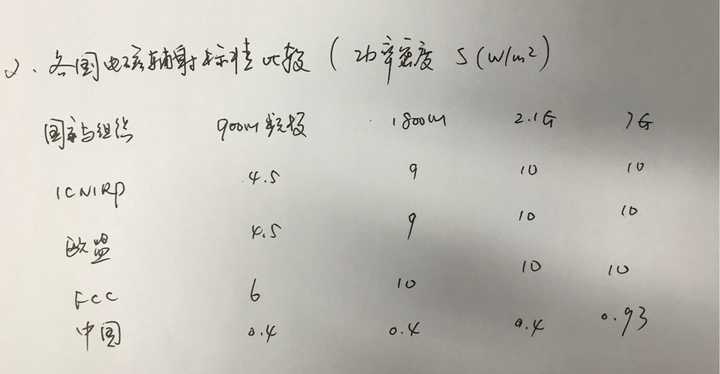 2、各国电磁辐射标准比较(功率密度 S(W/m²)
国家与组织 900M频段 1800M 2.1G 7G
ICNIRP 4.5 9 10 10
欧盟 4.5 9 10 10
FCC 6 10 10 10
中国 0.4 0.4 0.4 0.93